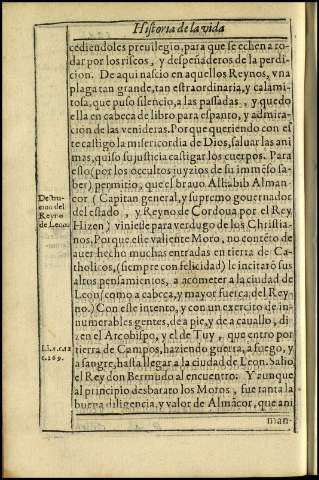 Historia de la vida
cediendoles preuilegio, para que se echen a ro-
dar por los riscos, y despeñaderos de la perdi-
cion. De aqui nascio en aquellos Reynos, vna
plaga tan grande, tan estraordinaria, y calami-
tosa, que puso silencio, a las passadas, y quedo
ella en cabeca de libro para espanto, y admira-
cion de las venideras. Porque queriendo con es
te castigo la misericordia de Dios, saluar las ani
mas, quiso su justicia castigar los cuerpos. Para
esto (por los occultos juyzios de su immẽso sa-
ber) permitio, que el brauo Alhabib Alman-
çor (Capitan general, y supremo gouernador
del estado, y Reyno de Cordoua por el Rey
Hizen) viniesse para verdugo de los Christia-
nos. Porque este valiente Moro, no contẽto de
auer hecho muchas entradas en tierra de Ca-
tholicos, (siempre con felicidad) le incitarõ sus
altos pensamientos, a acometer a la ciudad de
Leon (como a cabeça, y mayor fuerça del Rey-
no.) Con este intento, y con vn exercito de in-
numerables gentes, de a pie, y de a cauallo, di-
zen el Arcobispo, y el de Tuy, que entro por
tierra de Campos, haziendo guerra, a fuego, y
a sangre, hasta llegar a la ciudad de Leon. Salio
el Rey don Bermudo al encuentro. Y aunque
al principio desbarato los Moros, fue tanta la
buena diligencia, y valor de Almãçor, que ani
man-
Destru-
cion del
Reyno
de Leon.
c. 169.